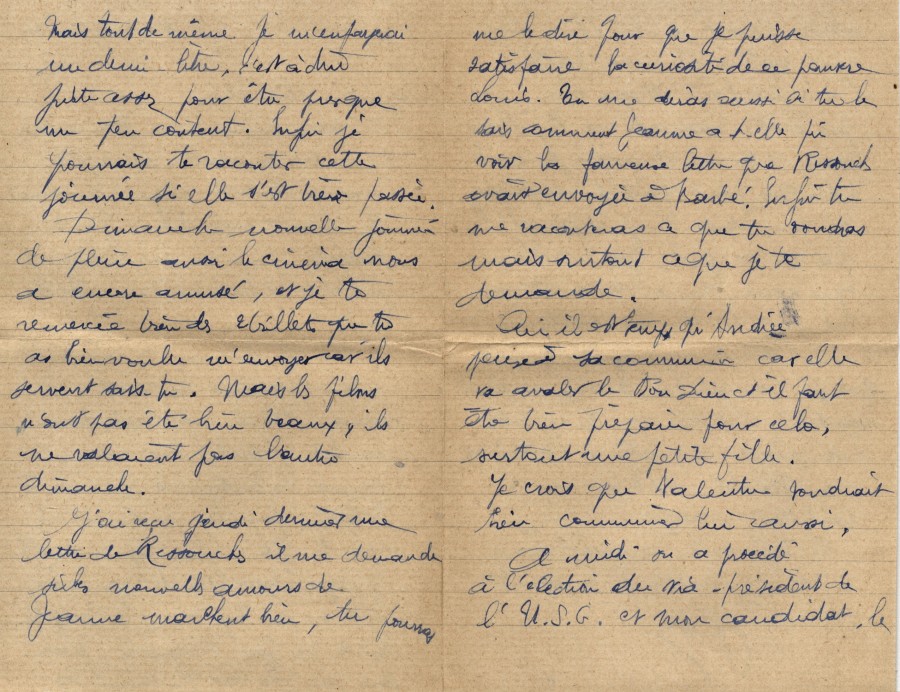 Mais tout de même je m'enfarçerai
une demi litre, c'est à dire
juste assez pour être presque
un peu content. Enfin je
pourrais te raconter cette
journée si elle s'est bien passée.
Dimanche nouvelle journée
de pluie aussi le cinéma nous
a encore amusé, et je te
remercie bien des billets que tu
as bien voulu m'envoyer car ils
servent sais-tu. Mais les films
n'ont pas été bien beaux, ils
ne valaient pas l'autre
dimanche.
J'ai reçu jeudi dernier une
lettre de Ressouches il me demande
si les nouvelles amours de
Jeanne marchent bien, tu pourras
me le dire pour que je puisse
satisfaire la curiosité de ce pauvre
Louis. Tu me diras aussi si tu le
sais comment Jeanne a t-elle pu
voir la fameuse lettre que Ressouches
avait envoyée à Barbé. Enfin tu
me raconteras ce que tu voudras
mais surtout ce que je te
demande.
Oui il est temps qu'Andrée
pense à sa communion car elle
va avaler le Bon Dieu et il faut
être bien préparée pour cela,
surtout une petite fille.
Je crois que Valentin voudrait
bien communier lui aussi,
A midi on a procédé
à l'élection du vice-président de
l'U.S.G. et mon candidat, le